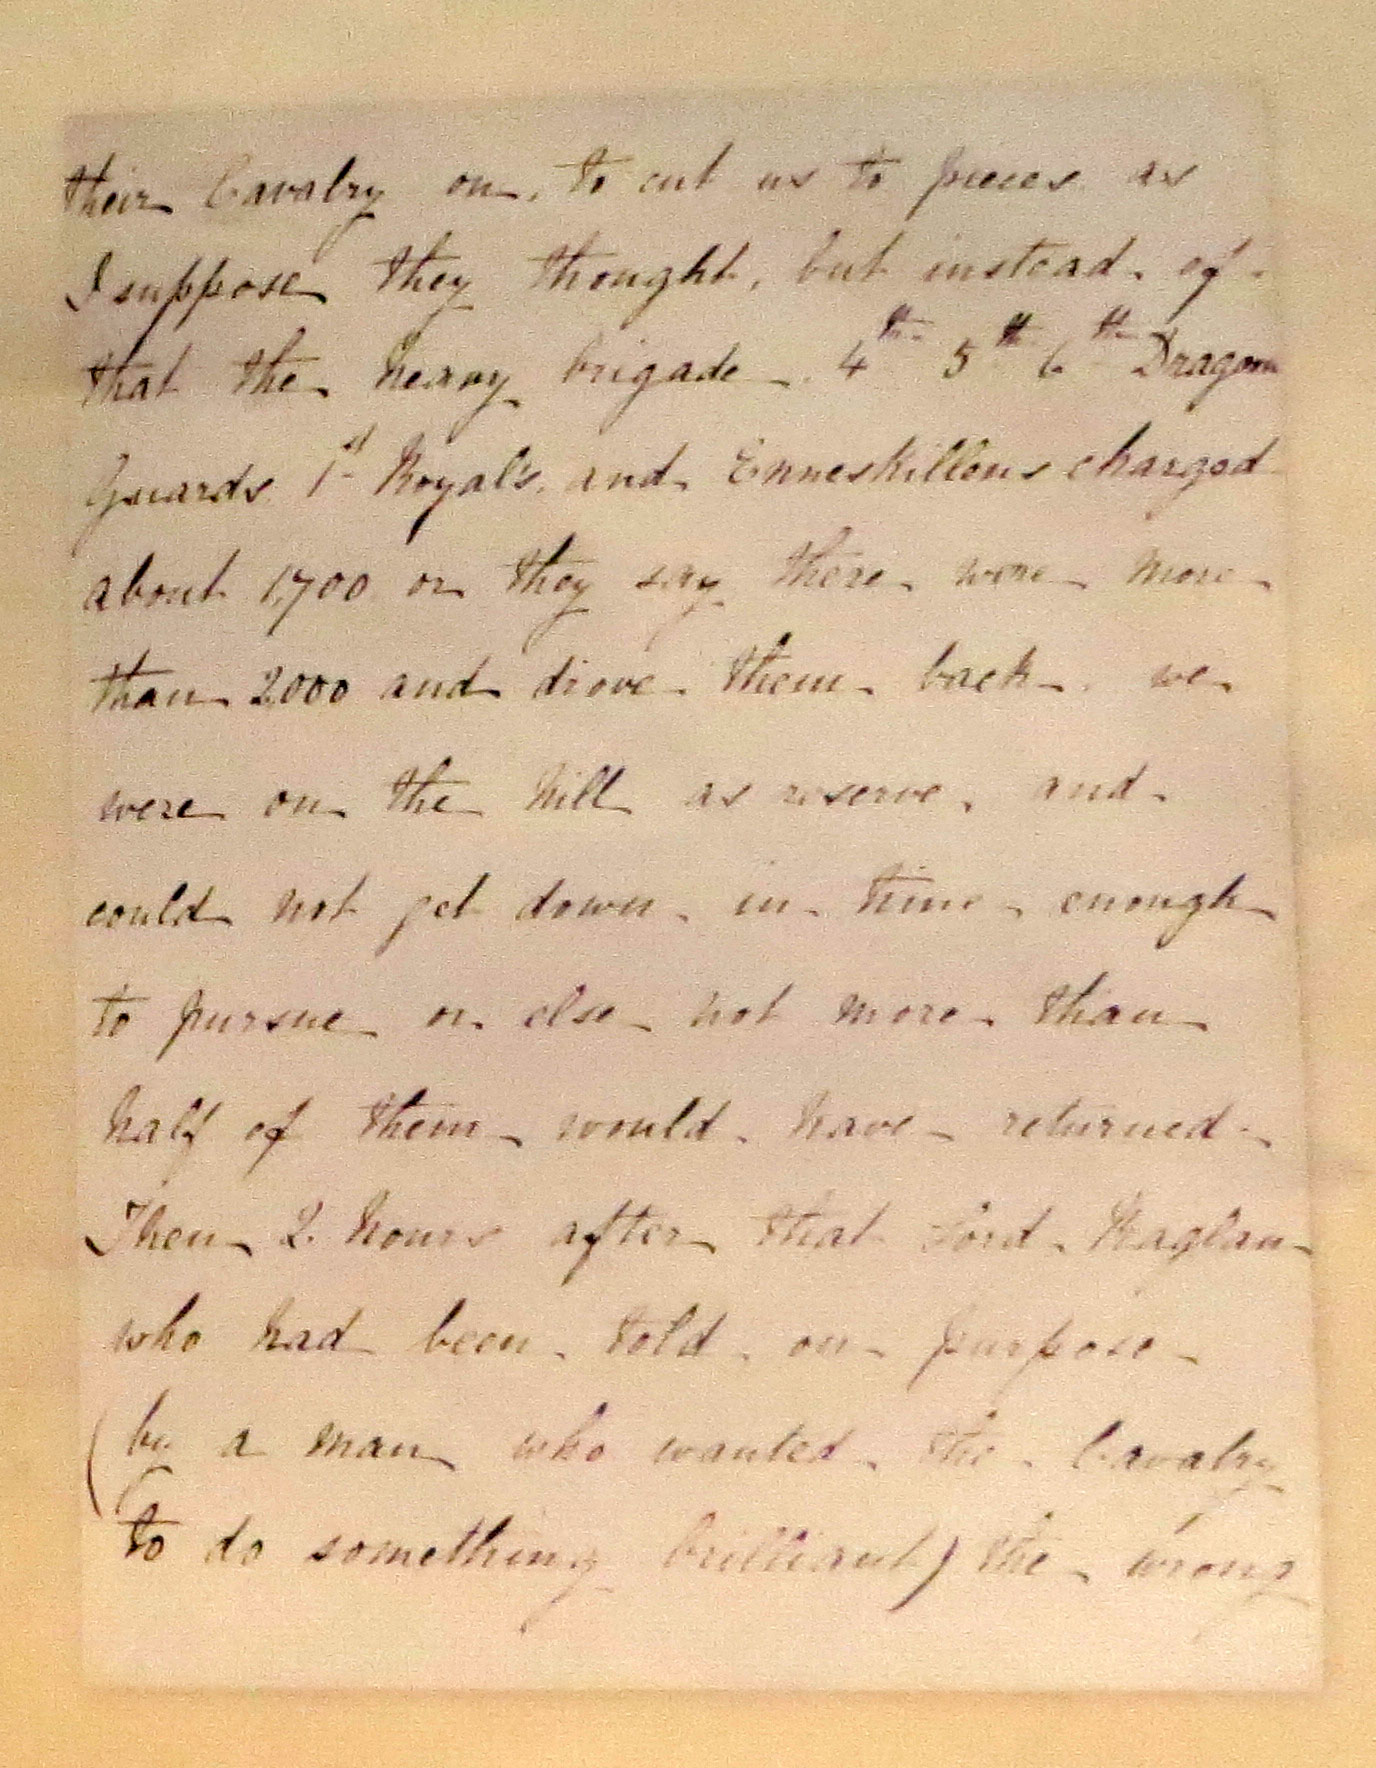 their Cavalry on, to cut us to pieces as
I suppose they thought, but instead of
that the heavy brigade 4th 5th 6th Dragoon
Guards 1st Royal's, and Enneskillens charged
about 1,700 or they say there were more
than 2,000 and drove them back. we
were on the hill as reserve, and
could not get down in time enough
to pursue or else not more than
half of them would have returned.
Then 2 hours after that Lord Raglan
who had been told on purpose
(by a man who wanted the Cavalry
to do something brilliant) the wrong